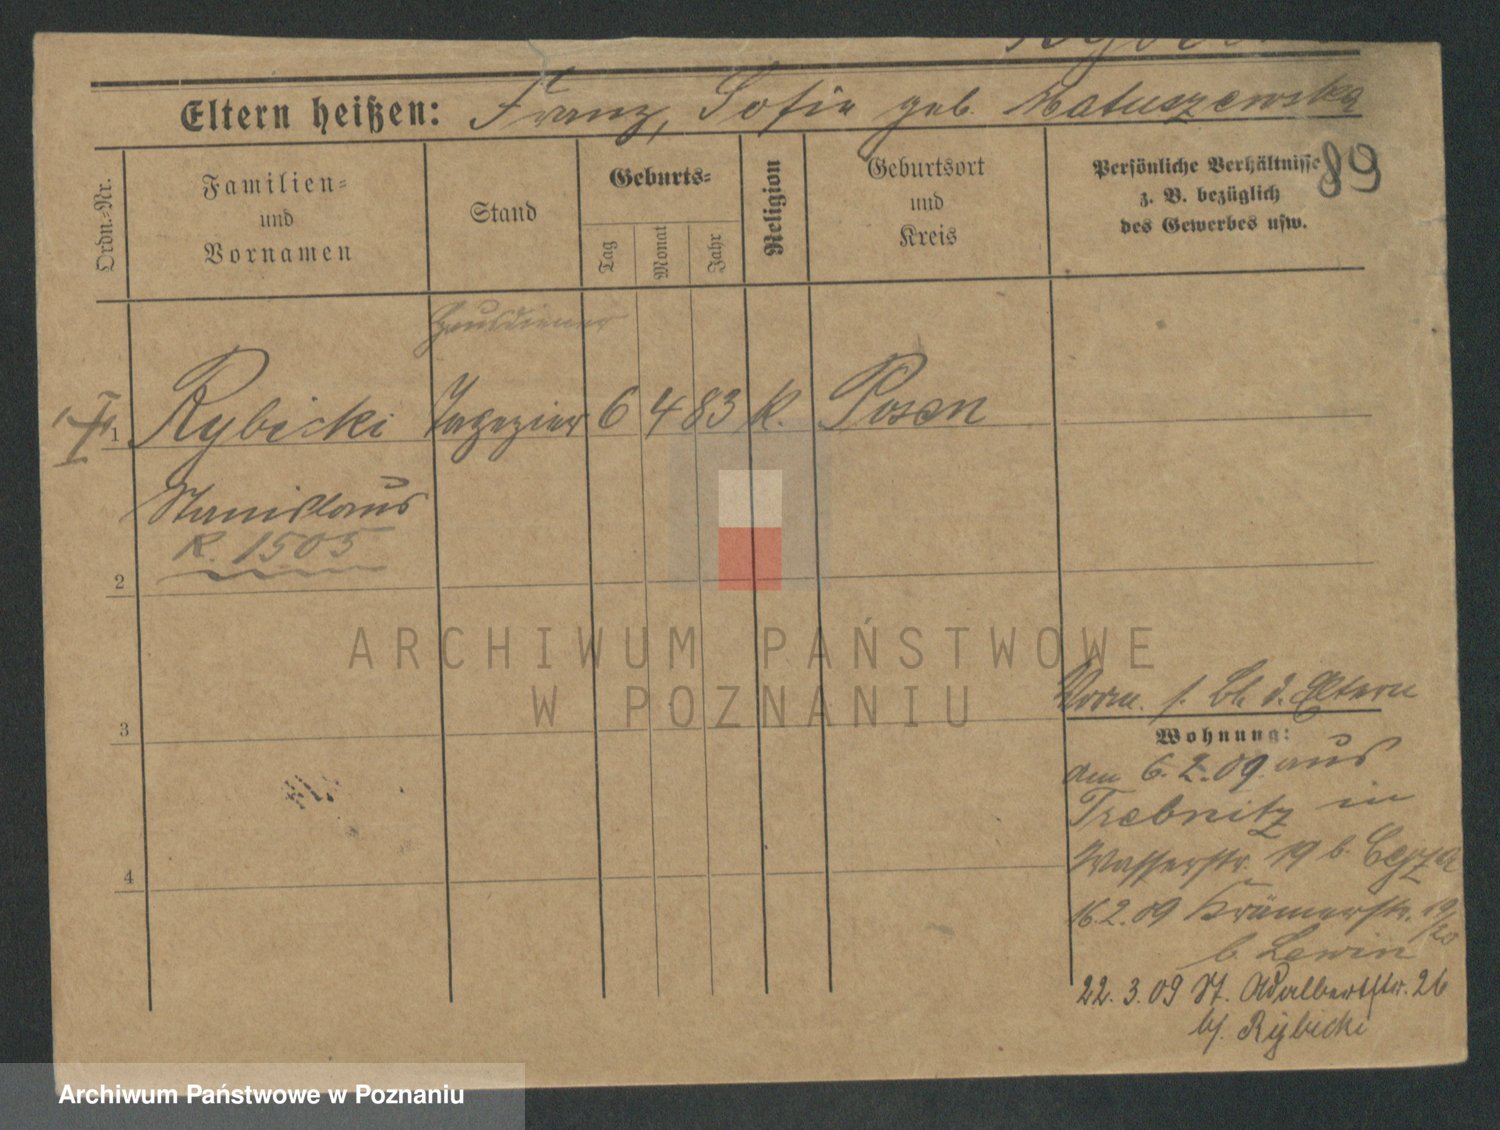 Eltern heißen: Franz, Sofie geb. Matuszewska
89
Ordn.-Nr.
Familien-
und
Vornamen
Stand
Geburts-
Tag
Monat
Jahr
Religion
Geburtsort
und
Kreis
Persönliche Verhältnisse
z. B. bezüglich
des Gewerbes usw.
Hausdiener
1 Rybicki Tapezier 6 4 83 K. Posen
Stanislaus
R. 1505
2
3
4
Vorm. s. Bl. d. Eltern
Wohnung:
den 6.2.09 aus
Trebnitz in
Wasserstr. 19 b.
16.2.09 Krämerstr. 19/20
b. Lewin
22.3.09 St. Adalbertstr. 26
b/. Rybicki
ARCHIWUM PAŃSTWOWE
W POZNANIU
Archiwum Państwowe w Poznaniu